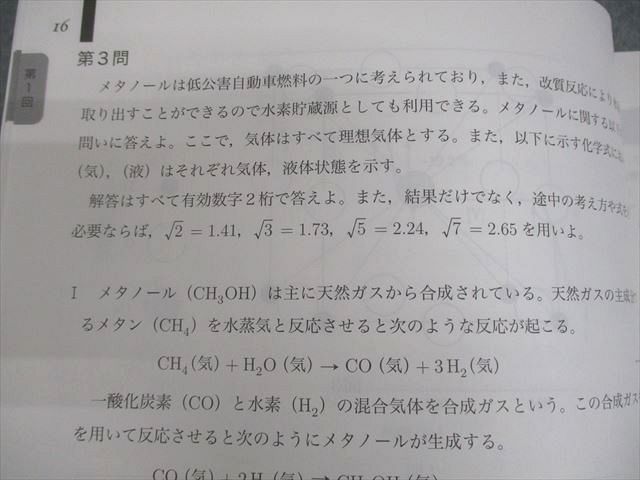 16
第1回
第3問
メタノールは低公害自動車燃料の一つに考えられており,また,改質反応により
取り出すことができるので水素貯蔵源としても利用できる。メタノールに関する以
問いに答えよ。ここで,気体はすべて理想気体とする。また,以下に示す化学式に
(気),(液)はそれぞれ気体,液体状態を示す。
解答はすべて有効数字2桁で答えよ。また,結果だけでなく,途中の考え方や式
必要ならば,√2=1.41,√3=1.73,√5=2.24,√7=2.65を用いよ。
I メタノール(CH₃OH)は主に天然ガスから合成されている。天然ガスの主成
るメタン(CH₄)を水蒸気と反応させると次のような反応が起こる。
CH₄(気)+H₂O(気)→CO(気)+3H₂(気)
一酸化炭素(CO)と水素(H₂)の混合気体を合成ガスという。この合成ガス
を用いて反応させると次のようにメタノールが生成する。
CO(気)+2H₂(気)→CH₃OH(気)